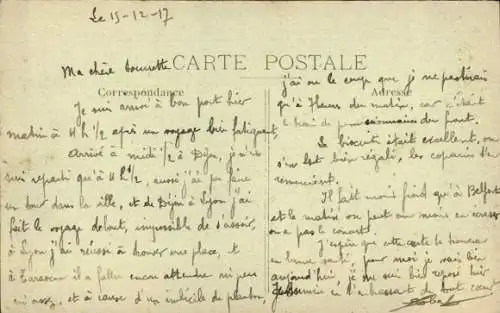 Le 15-12-17
CARTE POSTALE
Correspondance
Adresse
Ma chère
Je suis arrivé à bon port hier
matin à 4 h 1/2 après un voyage bien fatiguant,
Arrivé à midi 1/2 à Dijon, je n'en
suis reparti qu'à 4 h 1/2, aussi j'ai pu faire
un tour dans la ville, et de Dijon à Lyon j'ai
fait le voyage debout, impossible de s'asseoir,
à Lyon j'ai réussi à trouver une place, et
à Tarascon il a fallu encore attendre un peu
et à cause d'un imbécile de planton,
j'ai eu le coup que je ne partirais
qu'à heures du matin, car c'était
le train de permissionnaires du front.
Le biscuit était excellent, on
s'en est bien régalé, les copains t'en
remercient.
Il fait moins froid qu'à Belfort
et le matin on peut au moins
on a pas le
J'espère que cette carte te trouvera
en bonne santé, pour moi je vais bien
aujourd'hui, je me suis bien reposé hier
Je termine en t'embrassant de tout cœur